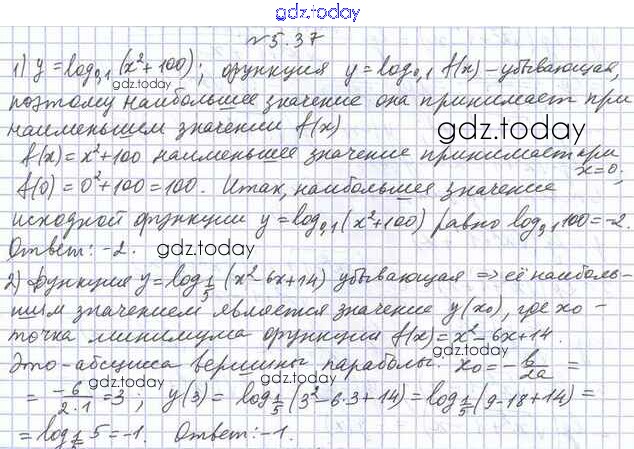 gdz.today
№5.37
1) y=log₀,₁(x²+100); функция y=log₀,₁ f(x) – убывающая,
gdz.today
поэтому наибольшее значение она принимает при
наименьшем значении f(x)
gdz.today
f(x)=x²+100 наименьшее значение принимает при
x=0;
f(0)=0²+100=100. Итак, наибольшее значение
исходной функции y=log₀,₁(x²+100) равно log₀,₁100=-2.
Ответ: -2.
gdz.today
2) Функция y=log_{1/5}(x²-6x+14) убывающая ⇒ её наиболь-
шим значением является значение y(x₀), где x₀ –
точка минимума функции f(x)=x²-6x+14.
Это - абсцисса вершины параболы. x₀=-b/2a=
gdz.today
gdz.today
= - -6/2·1=3; y(3)=log_{1/5}(3²-6·3+14)=log_{1/5}(9-18+14)=
=log_{1/5}5=-1. Ответ: -1.
gdz.today